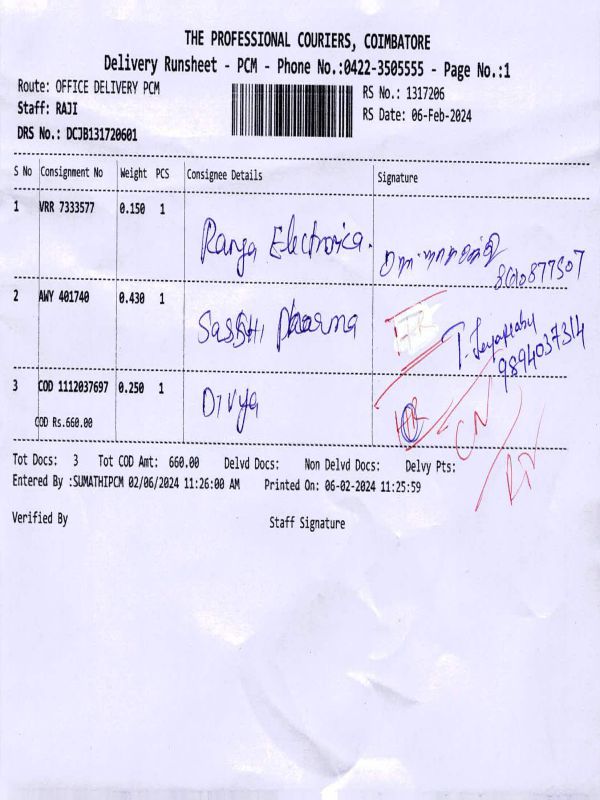 THE PROFESSIONAL COURIERS, COIMBATORE
Delivery Runsheet - PCM - Phone No.:0422-3505555 - Page No.:1
Route: OFFICE DELIVERY PCM
RS No.: 1317206
Staff: RAJI
RS Date: 06-Feb-2024
DRS No.: DCJB131720601
S No Consignment No Weight PCS Consignee Details Signature
1 VRR 7333577 0.150 1 Ranga Electronica.
2 AWY 401740 0.430 1 Sasthi Pharma
T. Jeyaprabu
9894037314
3 COD 1112037697 0.250 1 Divya
COD Rs.660.00
CN
Tot Docs: 3 Tot COD Amt: 660.00 Delvd Docs: Non Delvd Docs: Delvy Pts:
Entered By :SUMATHIPCM 02/06/2024 11:26:00 AM Printed On: 06-02-2024 11:25:59
Verified By Staff Signature